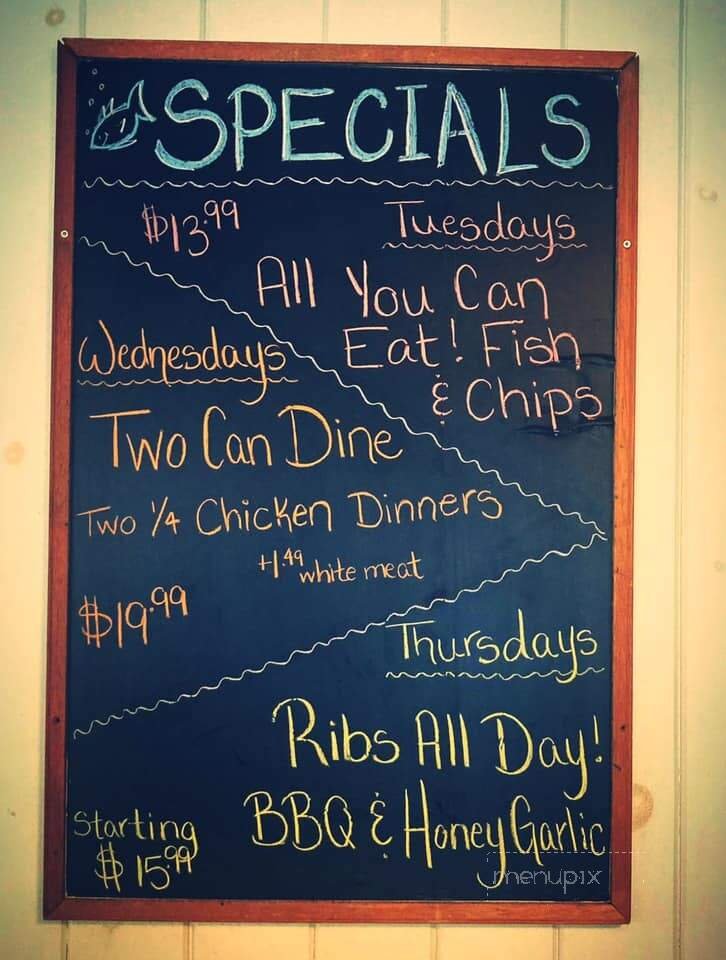 SPECIALS
$13.99
Tuesdays
All You Can
Eat! Fish
& Chips
Wednesdays
Two Can Dine
Two 1/4 Chicken Dinners
+1.49 white meat
$19.99
Thursdays
Ribs All Day!
BBQ & Honey Garlic
Starting
$15.99
menupix